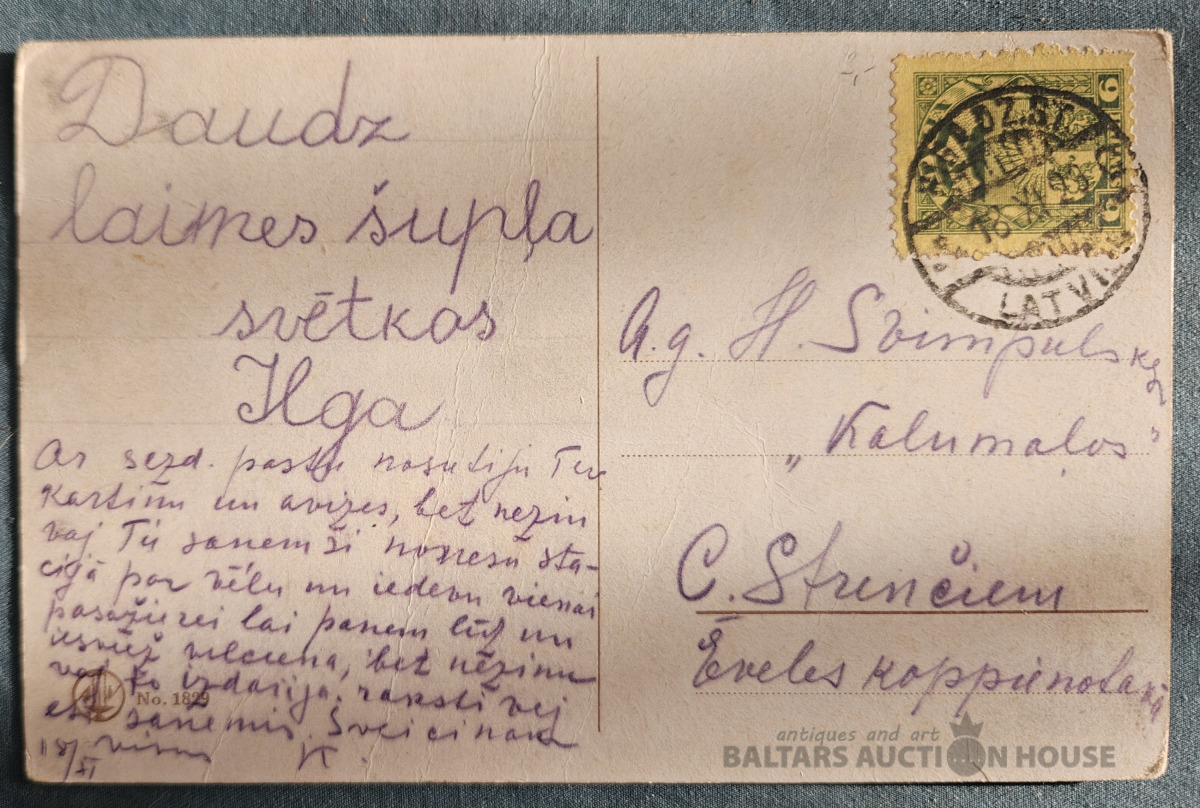 Daudz
laimes šupļa
svētkos
Ilga
Ar sezd. pastu nosutiju Tev
kartiņu un avizes, bet nezin
vaj Tu saņemši nonesu sta-
cijā par vēlu un iedevu vienai
pasažierei lai paņem līdz un
vilciena, bet nēzinu
vaj to izdarija. raksti vej
esi saņemis. Sveicinam
visus K.
18/XI
No. 1829
2,-
6 6
DZ.ST.
18 XI 29
LATVIJA
A.g. H. Svimpulskej
„Kalumaļos"
C. Strenčiem
Ēveles koppienotajā
antiques and art
BALTARS AUCTION HOUSE